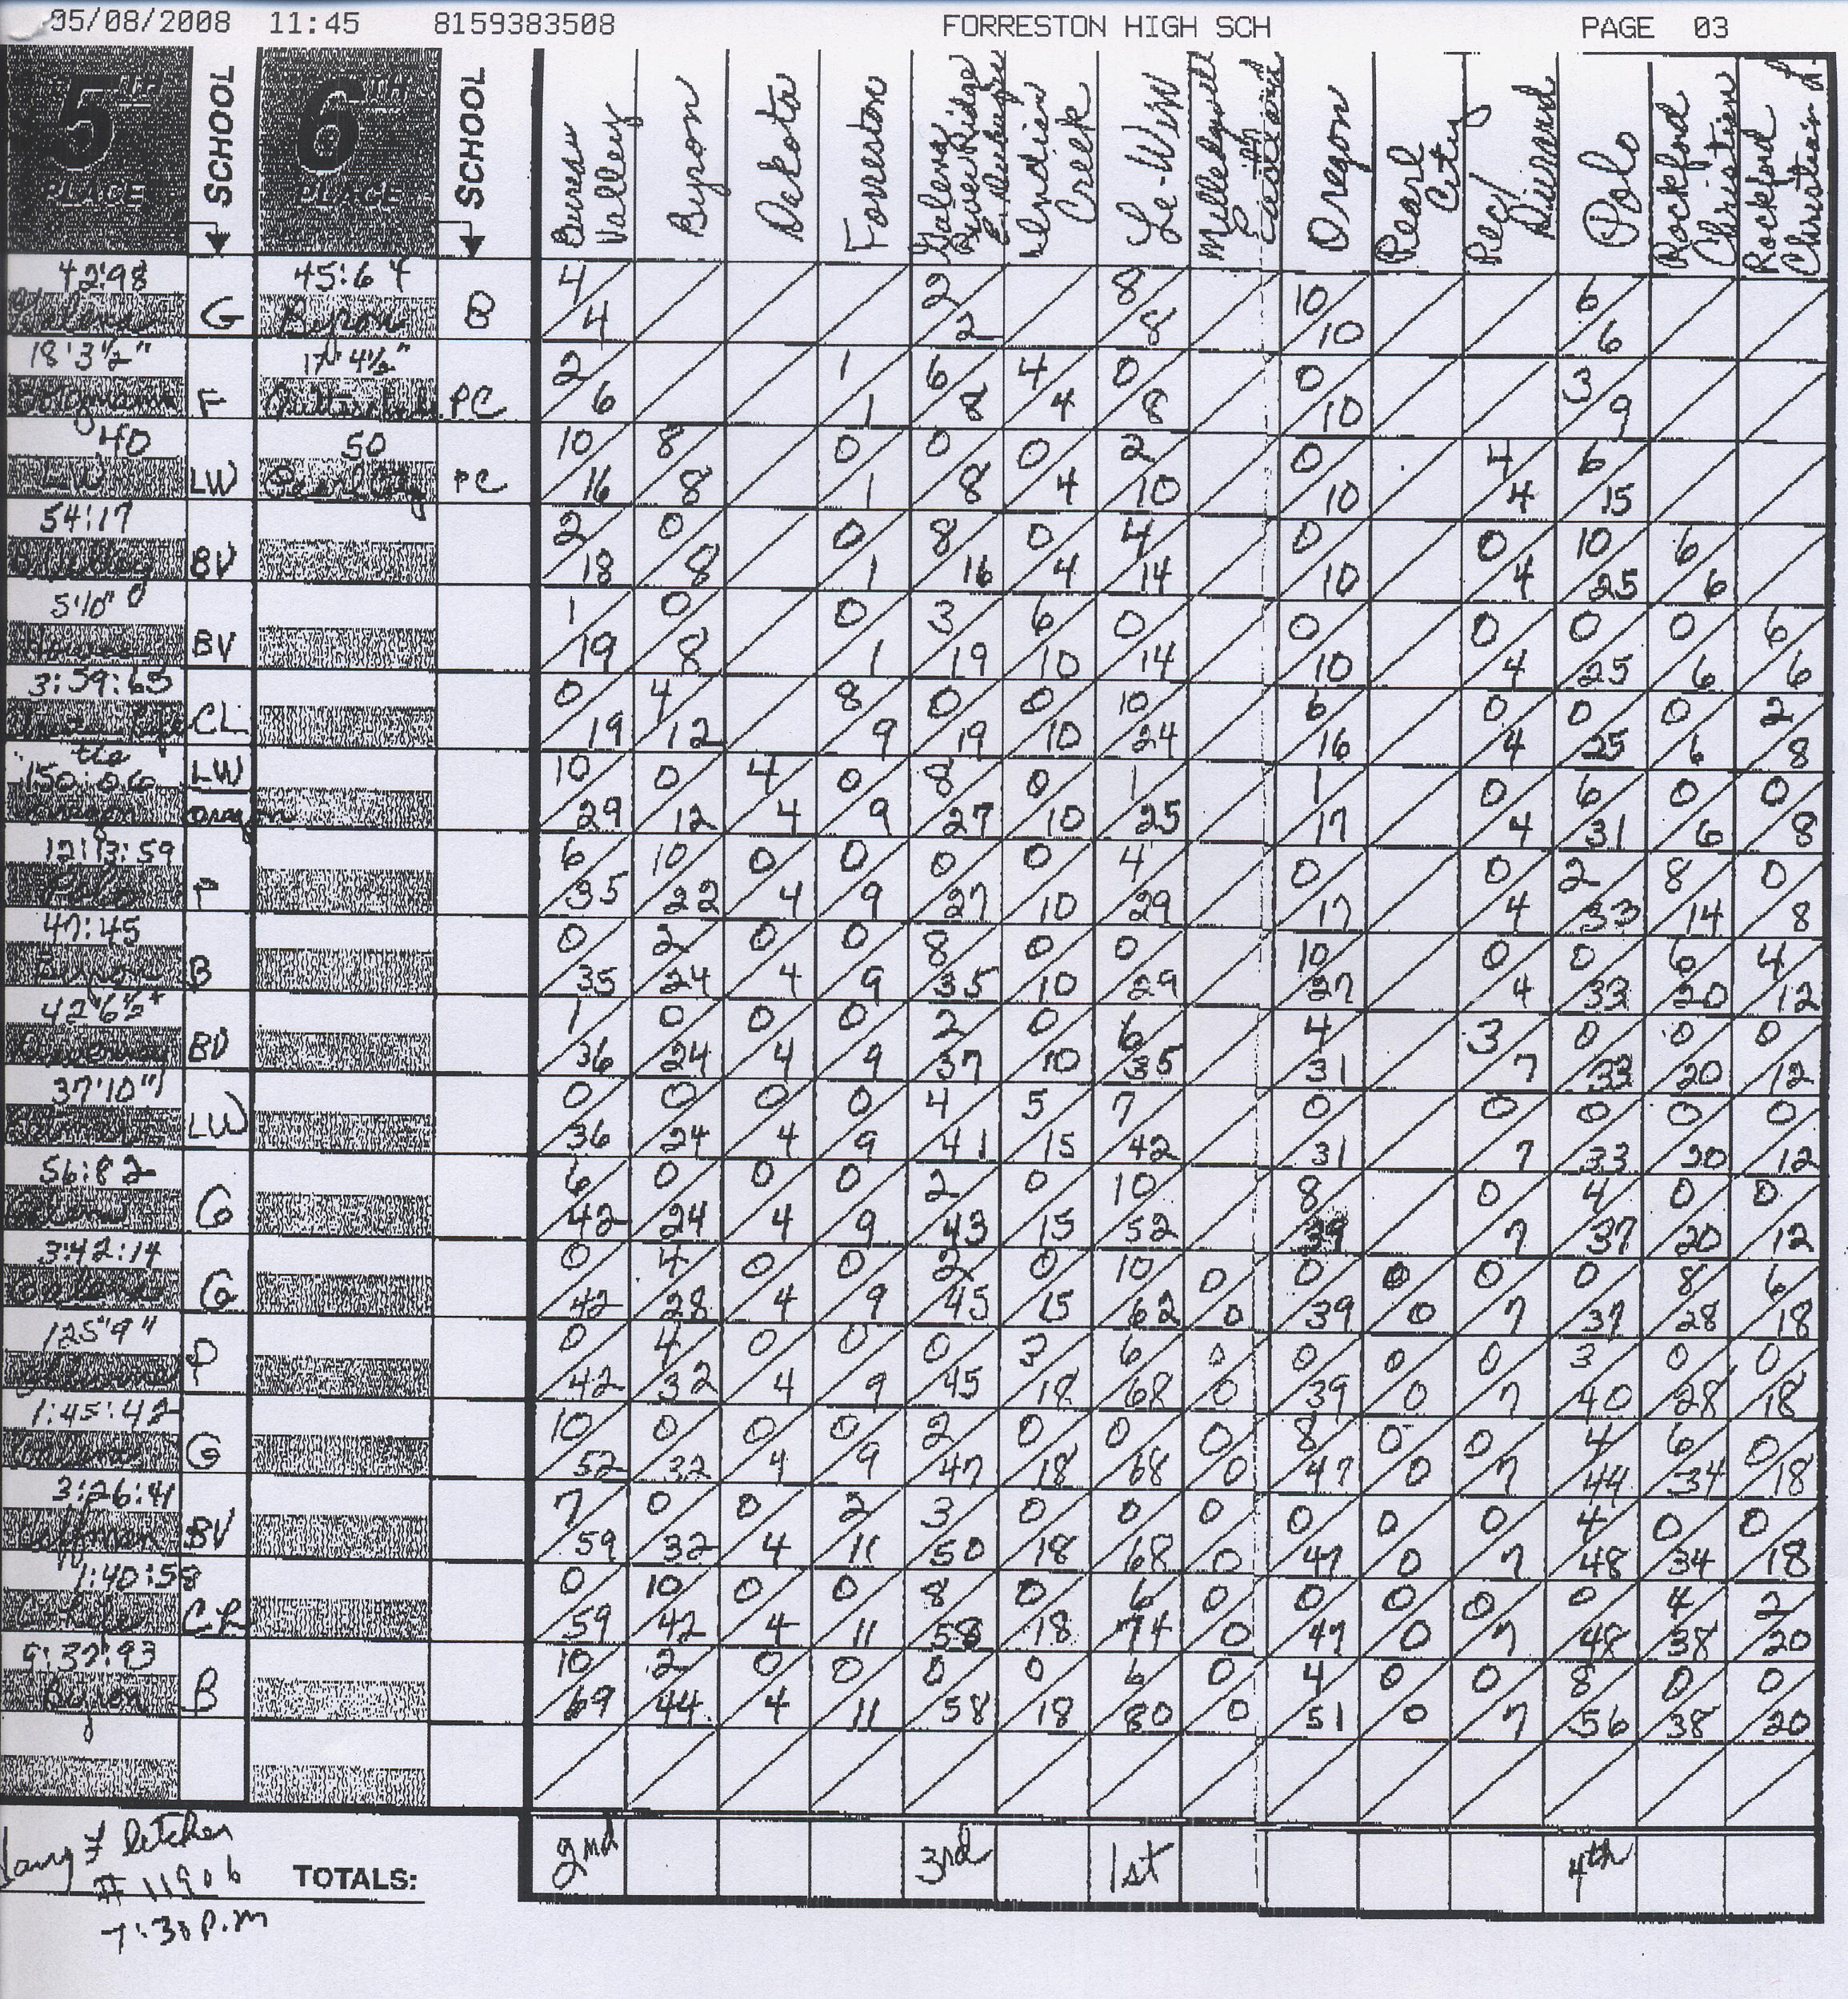 05/08/2008 11:45 8159383508 FORRESTON HIGH SCH PAGE 03
5TH PLACE SCHOOL 6TH PLACE SCHOOL Bureau Valley Byron Dakota Forreston Galena River Ridge E. Dubuque Indian Creek Le-Win Milledgeville Eastland Oregon Pearl City Pec/ Durand Polo Rockford Christian Rockford Christian L.
42:98 45:64 4 2 8 10 6
Galena G Byron B 4 2 8 10 6
18'3½" 17'4½" 2 1 6 4 0 0 3
F PC 6 1 8 4 8 10 9
40 50 10 8 0 0 0 2 0 4 6
LW LW Pearl City PC 16 8 1 8 4 10 10 4 15
54:17 2 0 0 8 0 4 0 0 10 6
B Valley BV 18 8 1 16 4 14 10 4 25 6
5'10" 1 0 0 3 6 0 0 0 0 0 6
BV 19 8 1 19 10 14 10 4 25 6 6
3:59:63 0 4 8 0 0 10 6 0 0 0 2
CL 19 12 9 19 10 24 16 4 25 6 8
tie
150:06 LW 10 0 4 0 8 0 1 1 0 6 0 0
Oregon Oregon 29 12 4 9 27 10 25 17 4 31 6 8
12:13:59 6 10 0 0 0 0 4 0 0 2 8 0
Polo P 35 22 4 9 27 10 29 17 4 33 14 8
47:45 0 2 0 0 8 0 0 10 0 0 6 4
Byron B 35 24 4 9 35 10 29 27 4 33 20 12
42'6½" 1 0 0 0 2 0 6 4 3 0 0 0
BV 36 24 4 9 37 10 35 31 7 33 20 12
37'10" 0 0 0 0 4 5 7 0 0 0 0 0
LW 36 24 4 9 41 15 42 31 7 33 20 12
56:82 6 0 0 0 2 0 10 8 0 4 0 0
Galena G 42 24 4 9 43 15 52 39 7 37 20 12
3:42:14 0 4 0 0 2 0 10 0 0 0 0 0 8 6
Galena G 42 28 4 9 45 15 62 0 39 0 7 37 28 18
125"9" 0 4 0 0 0 3 6 0 0 0 0 3 0 0
P 42 32 4 9 45 18 68 0 39 0 7 40 28 18
1:45:42 10 0 0 0 2 0 0 0 8 0 0 4 6 0
Galena G 52 32 4 9 47 18 68 0 47 0 7 44 34 18
3:26:41 7 0 0 2 3 0 0 0 0 0 0 4 0 0
Hoffman BV 59 32 4 11 50 18 68 0 47 0 7 48 34 18
1:40:58 0 10 0 0 8 0 6 0 0 0 0 0 4 2
C-Life CL 59 42 4 11 58 18 74 0 47 0 7 48 38 20
9:32:93 10 2 0 0 0 0 6 0 4 0 0 8 0 0
Byron B 69 44 4 11 58 18 80 0 51 0 7 56 38 20
TOTALS: 2nd 3rd 1st 4th
# 11906
7:30 P.m